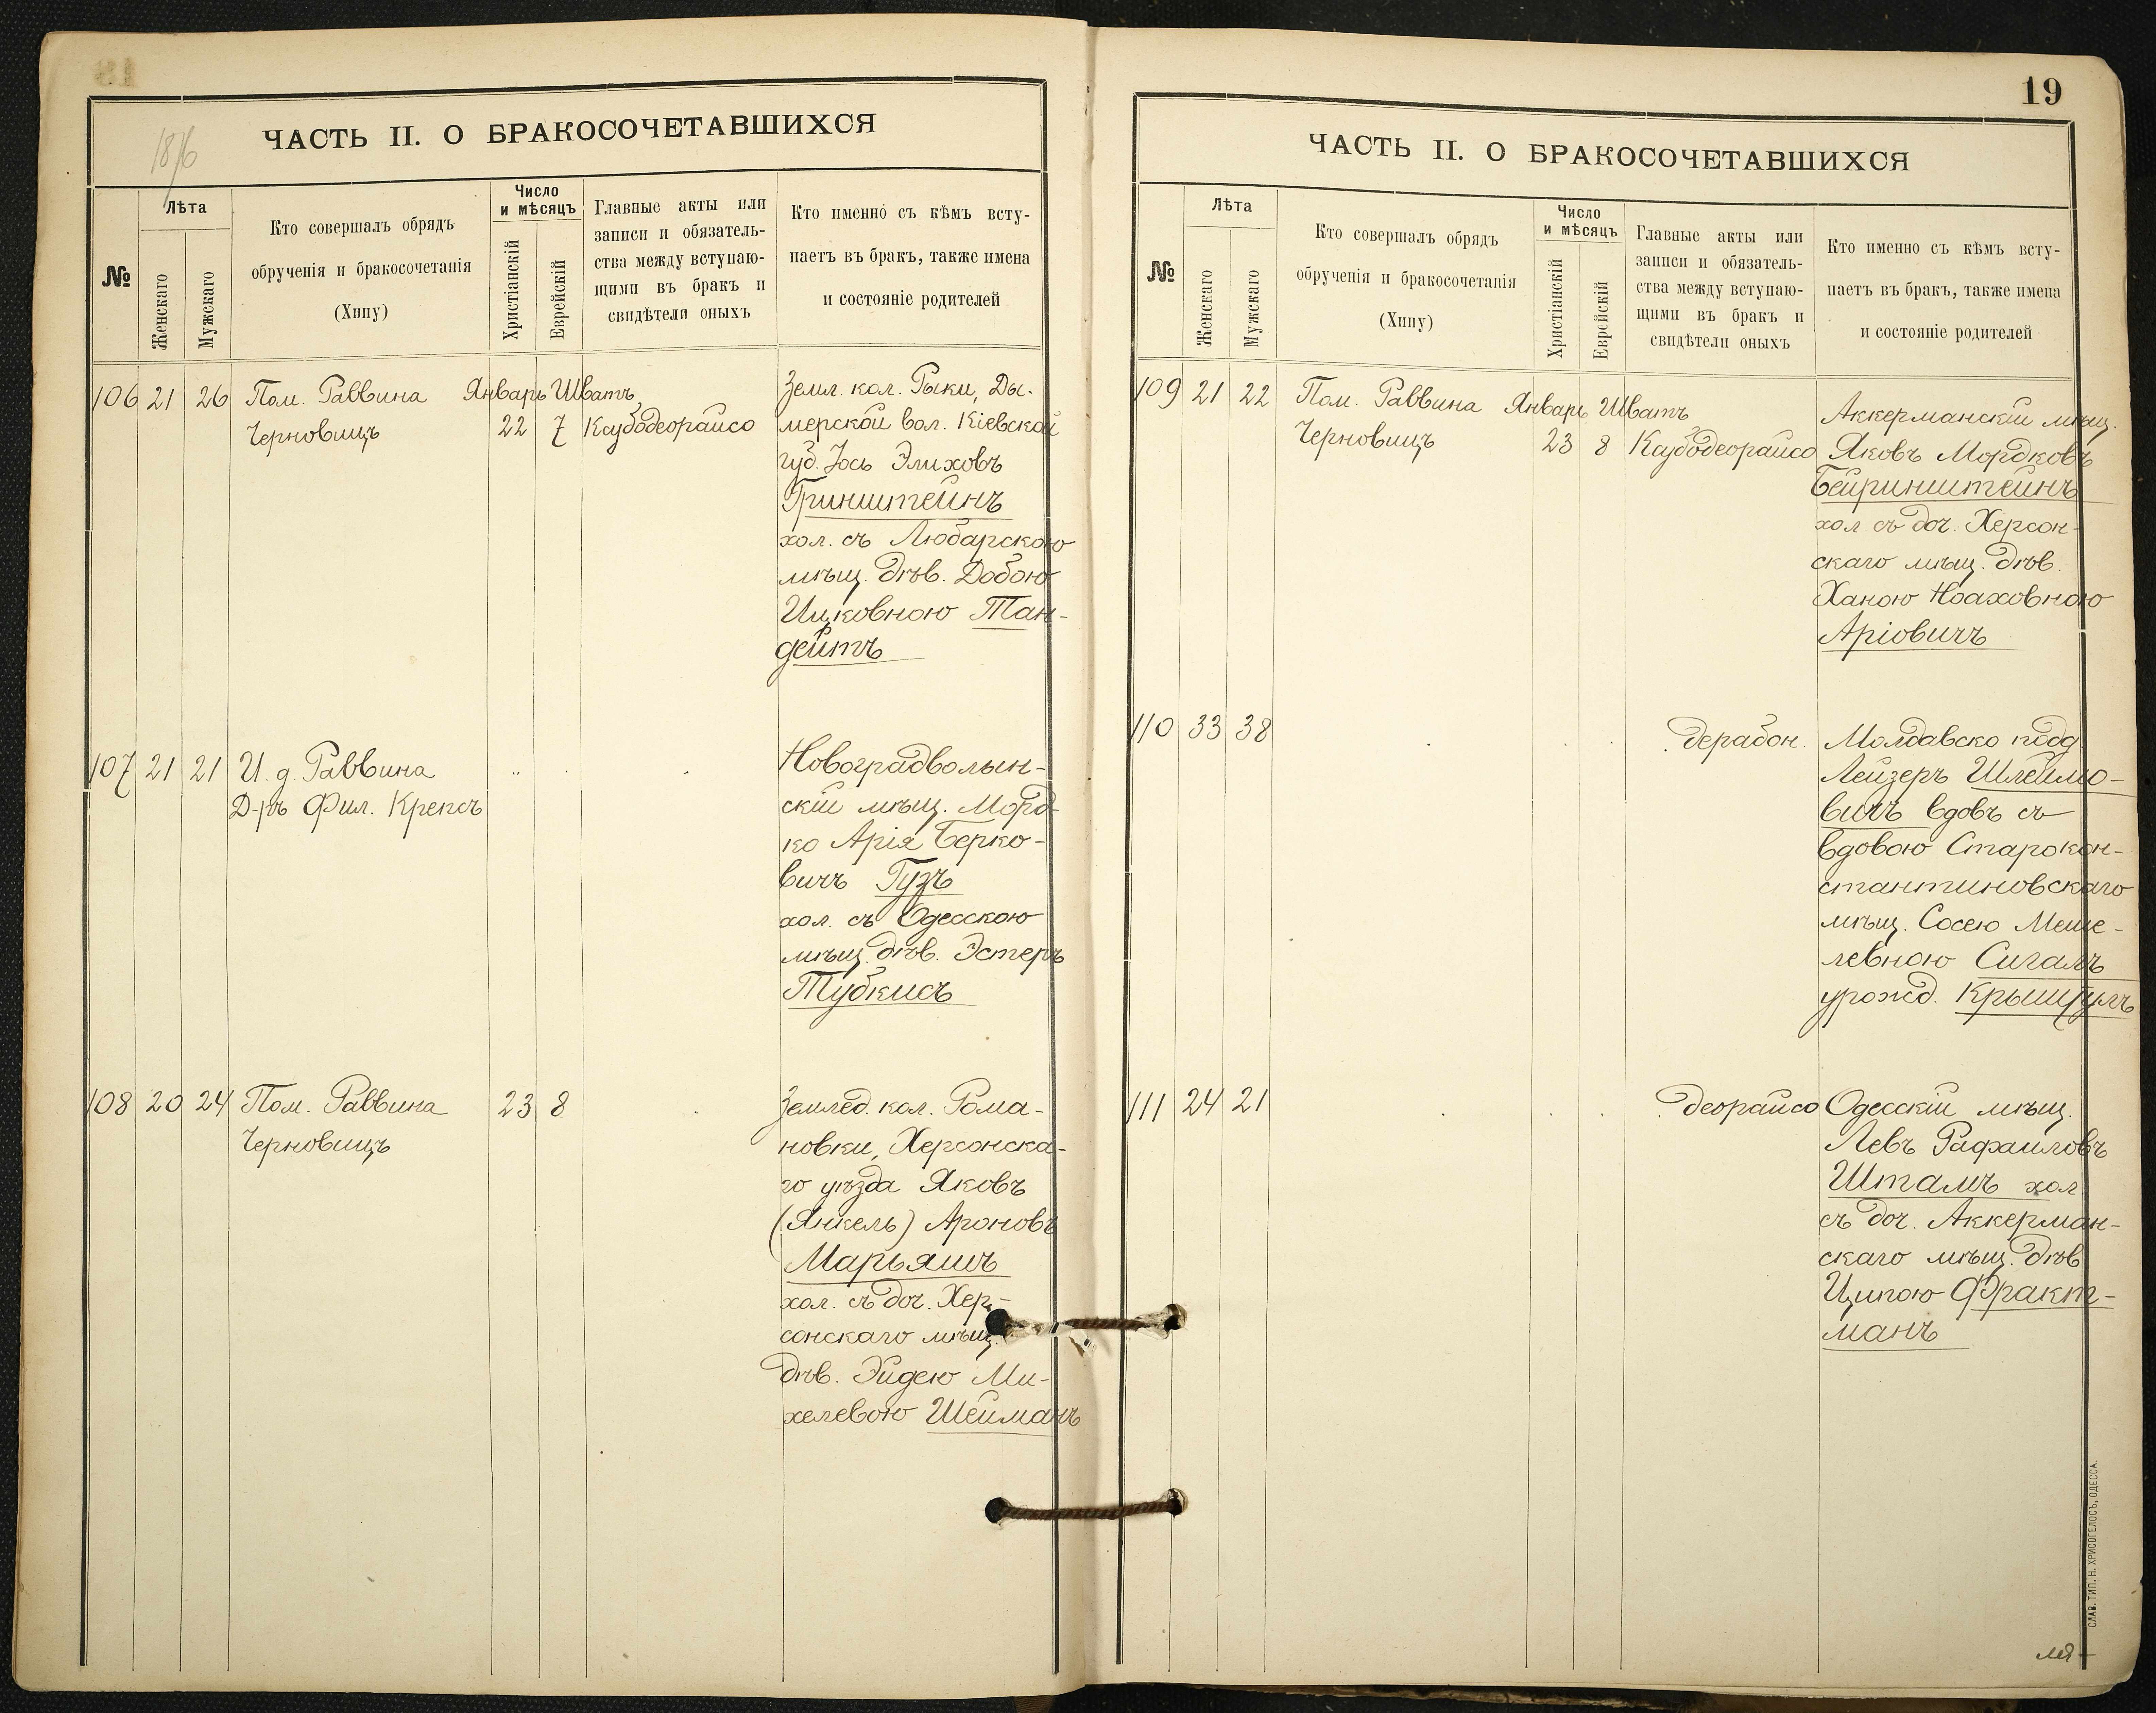 18/6
ЧАСТЬ II. О БРАКОСОЧЕТАВШИХСЯ
№
Лѣта
Женскаго
Мужскаго
Кто совершалъ обрядъ
обрученія и бракосочетанія
(Хипу)
Число
и мѣсяцъ
Христіанскій
Еврейскій
Главные акты или
записи и обязатель-
ства между вступаю-
щими въ бракъ и
свидѣтели оныхъ
Кто именно съ кѣмъ всту-
паетъ въ бракъ, также имена
и состояніе родителей
106 21 26 Пом. Раввина Январь Шватъ
Черновицъ 22 7 Каубодеорайсо
Земл. кол. Рыки, Ды-
мерской вол. Кіевской
губ. Іось Элиховъ
Гринштейнъ
хол. съ Любарскою
мѣщ. дѣв. Добою
Ицковною Тан-
дейтъ
107 21 21 И. д. Раввина
Д-ръ Фил. Крепсъ
Новоградволын-
скій мѣщ. Морд-
ко Арія Берко-
вичъ Гузъ
хол. съ Одесскою
мѣщ. дѣв. Эстеръ
Тубкисъ
108 20 24 Пом. Раввина 23 8
Черновицъ
Землед. кол. Рома-
новки, Херсонска-
го уѣзда Яковъ
(Янкель) Ароновъ
Марьяшъ
хол. съ доч. Хер-
сонскаго мѣщ.
дѣв. Эйдею Ми-
хелевою Шейманъ
19
ЧАСТЬ II. О БРАКОСОЧЕТАВШИХСЯ
№
Лѣта
Женскаго
Мужскаго
Кто совершалъ обрядъ
обрученія и бракосочетанія
(Хипу)
Число
и мѣсяцъ
Христіанскій
Еврейскій
Главные акты или
записи и обязатель-
ства между вступаю-
щими въ бракъ и
свидѣтели оныхъ
Кто именно съ кѣмъ всту-
паетъ въ бракъ, также имена
и состояніе родителей
109 21 22 Пом. Раввина Январь Шватъ
Черновицъ 23 8 Каубодеорайсо
Аккерманскій мѣщ.
Яковъ Мордковъ
Бейринштейнъ
хол. съ доч. Херсон-
скаго мѣщ. дѣв.
Ханою Ноаховною
Аріовичъ
110 33 38 дерабон.
Молдавско подд.
Лейзеръ Шлеймо-
вичъ вдовъ съ
вдовою Старокон-
стантиновскаго
мѣщ. Сосею Меше-
левною Сигалъ
урожд.
111 24 21 деорайсо
Одесскій мѣщ.
Левъ Рафаиловъ
Штамъ хол.
съ доч. Аккерман-
скаго мѣщ. дѣв.
Ципою Фракт-
манъ
СЛАВ. ТИП. Н. ХРИСОГЕЛОСЪ, ОДЕССА.